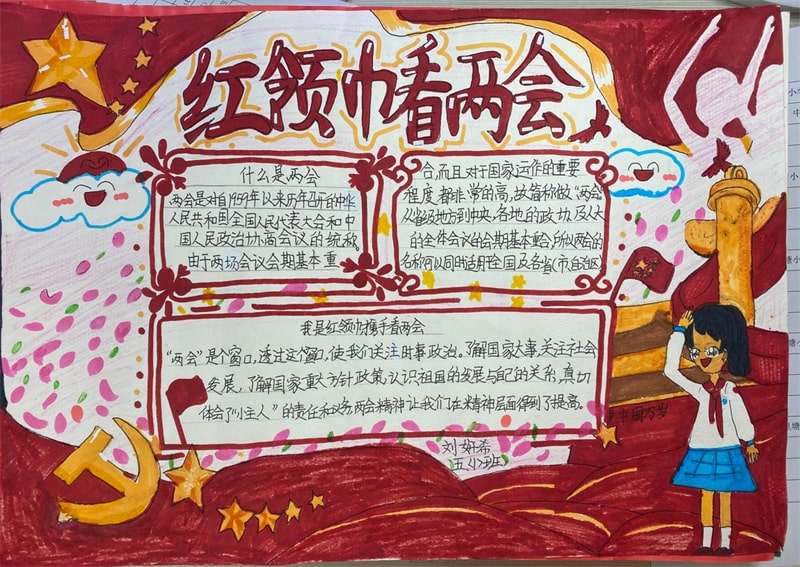 红领巾看两会
什么是两会
两会是对自1959年以来历年召开的中华
人民共和国全国人民代表大会和中
国人民政治协商会议的统称
由于两场会议会期基本重
合,而且对于国家运作的重要
程度都非常的高,故简称做"两会"
从省级地方到中央,各地的政协及人大
的全体会议的会期基本重合,所以两会的
名称可以同时适用于全国及各省(市,自治区)
我是红领巾携手看两会
"两会"是个窗口,透过这个窗口,使我们关注时事政治。了解国家大事,关注社会
发展,了解国家重大方针政策,认识祖国的发展与自己的关系,真切
体会了"小主人"的责任和义务,两会精神让我们在精神层面得到了提高。
中国万岁
刘妍希
五(2)班